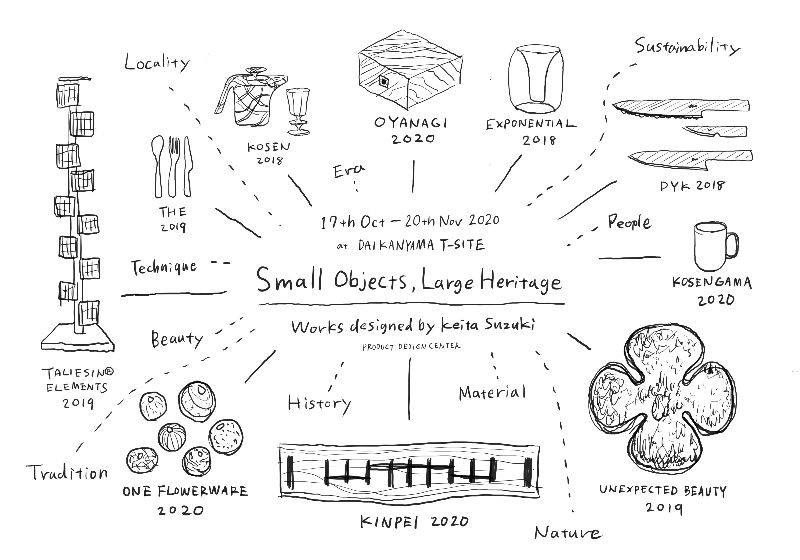 Locality
Sustainability
KOSEN
2018
OYANAGI
2020
EXPONENTIAL
2018
DYK 2018
Era
THE
2019
17th Oct - 20th Nov 2020
at DAIKANYAMA T-SITE
People
Technique
Small Objects, Large Heritage
KOSENGAMA
2020
Works designed by Keita Suzuki
PRODUCT DESIGN CENTER
Beauty
TALIESIN®
ELEMENTS
2019
History
Material
Tradition
ONE FLOWERWARE
2020
KINPEI 2020
UNEXPECTED BEAUTY
2019
Nature